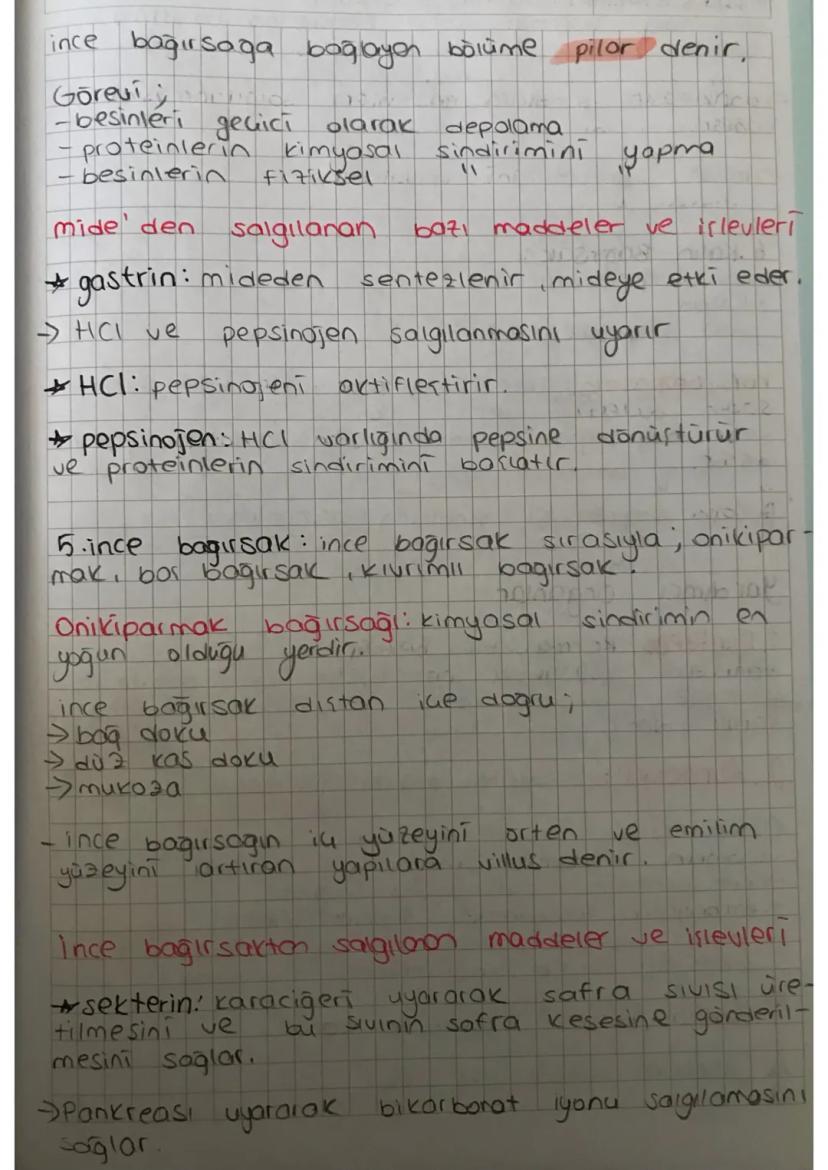 ince bağırsağa bağlayan bölüme pilor denir.
Görevi;
-besinleri geçici olarak depolama
-proteinlerin kimyasal sindirimini yapma
-besinlerin fiziksel " "
mide'den salgılanan bazı maddeler ve işlevleri
★ gastrin: mideden sentezlenir, mideye etki eder.
→ HCl ve pepsinojen salgılanmasını uyarır
★ HCl: pepsinojeni aktifleştirir.
★ pepsinojen: HCl varlığında pepsine dönüştürür
ve proteinlerin sindirimini başlatır.
5.ince bağırsak: ince bağırsak sırasıyla; onikipar-
mak, boş bağırsak, kıvrımlı bağırsak.
Onikiparmak bağırsağı: kimyasal sindirimin en
yoğun olduğu yerdir.
ince bağırsak dıştan içe doğru;
→ bağ doku
→ düz kas doku
→ mukoza
- ince bağırsağın iç yüzeyini örten ve emilim
yüzeyini artıran yapılara villus denir.
İnce bağırsaktan salgılanan maddeler ve işlevleri
★ sekterin: karaciğeri uyararak safra sıvısı üre-
tilmesini ve bu sıvının safra kesesine gönderil-
mesini sağlar.
→ Pankreası uyararak bikarbonat iyonu salgılamasını
sağlar.